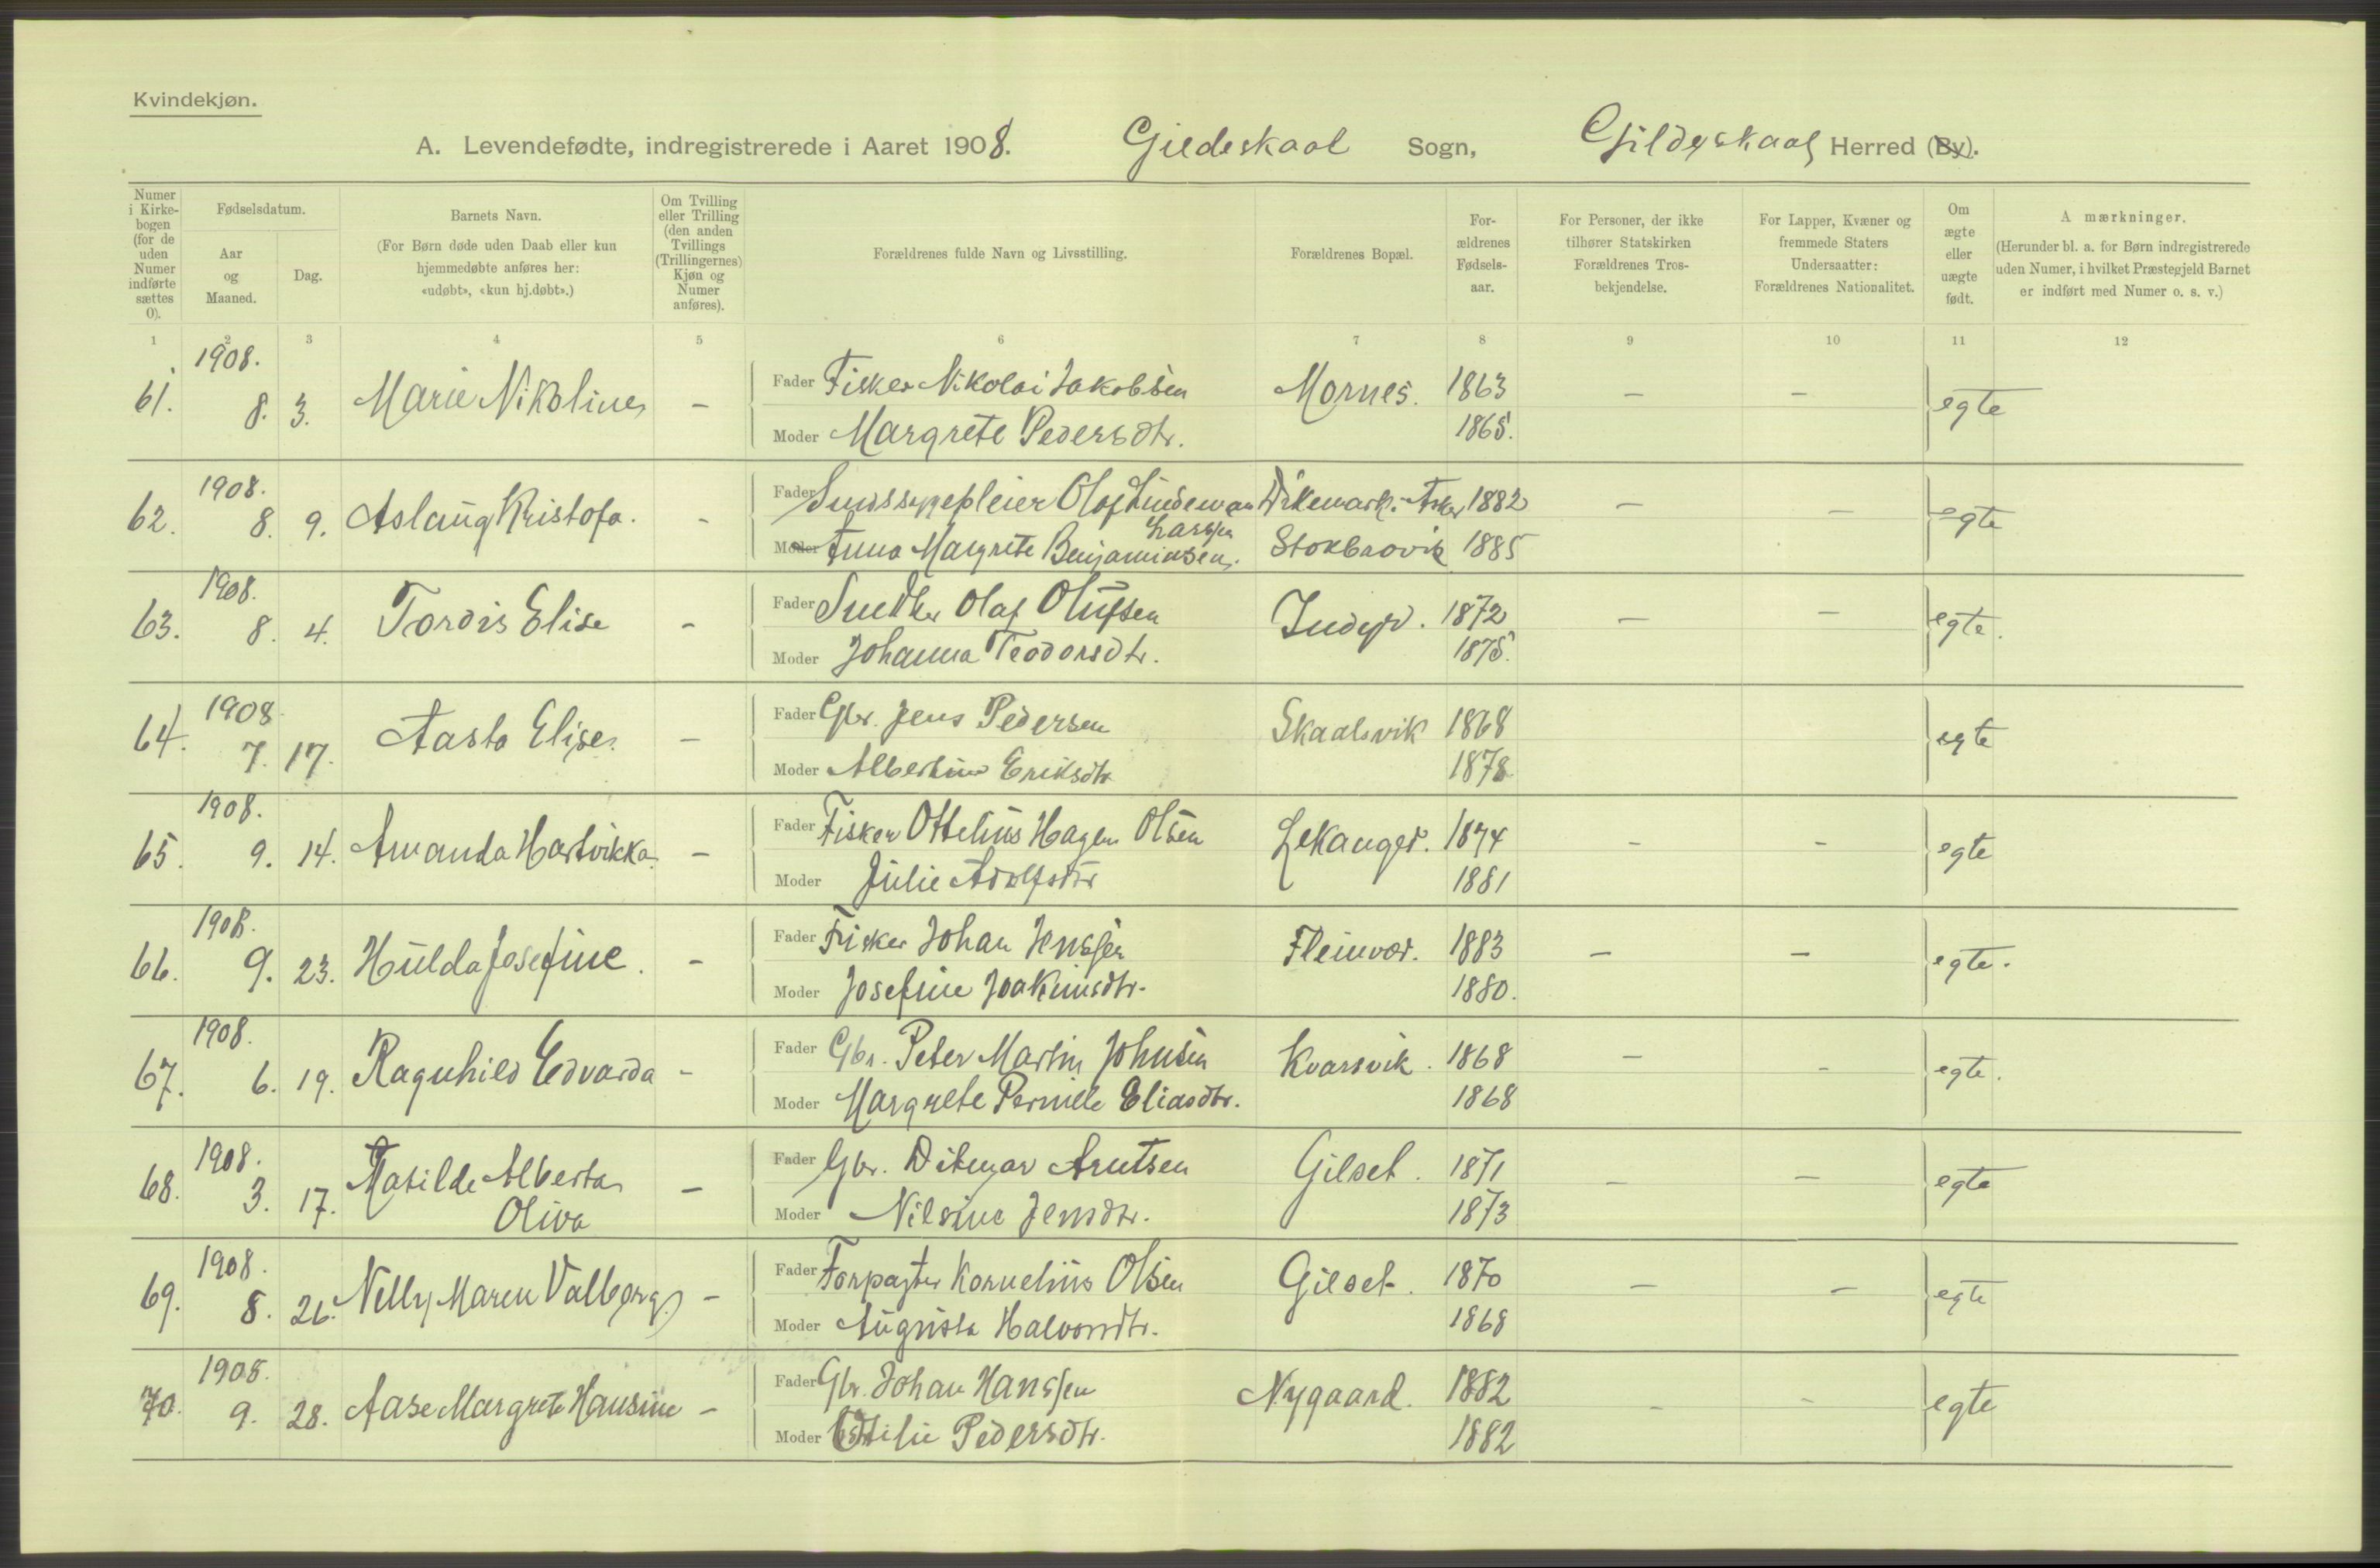 Kvindekjøn.
A. Levendefødte, indregistrerede i Aaret 1908. Gildeskaal Sogn, Gildeskaal Herred (By).
Numer i Kirkebogen (for de uden Numer indførte sættes 0).
Fødselsdatum.
Aar og Maaned.
Dag.
Barnets Navn.
(For Børn døde uden Daab eller kun hjemmedøbte anføres her: «udøbt», «kun hj.døbt».)
Om Tvilling eller Trilling (den anden Tvillings (Trillingernes) Kjøn og Numer anføres).
Forældrenes fulde Navn og Livsstilling.
Forældrenes Bopæl.
For-ældrenes Fødsels-aar.
For Personer, der ikke tilhører Statskirken Forældrenes Tros-bekjendelse.
For Lapper, Kvæner og fremmede Staters Undersaatter: Forældrenes Nationalitet.
Om ægte eller uægte født.
A mærkninger.
(Herunder bl. a. for Børn indregistrerede uden Numer, i hvilket Præstegjeld Barnet er indført med Numer o. s. v.)
1 2 3 4 5 6 7 8 9 10 11 12
61. 1908. 8. 3. Marie Nikoline - Fader Fisker Nikolai Jakobsen Mornes. 1863 - - egte
Moder Margrete Pedersdtr. 1865.
62. 1908. 8. 9. Aslaug Kristofa. - Fader Olaf Lindeman Dikemark. Asker 1882 - - egte
Larssen
Moder Anna Margrete Benjaminsen. Storbrovik 1885
63. 1908. 8. 4. Tordis Elise - Fader Snedker Olaf Olufsen Indyr. 1872 - - egte.
Moder Johanna Teodorsdtr. 1875.
64. 1908 7. 17. Aasta Elise. - Fader Gbr. Jens Pedersen Skaalsvik 1868 egte
Moder Albertine Eriksdtr 1878
65. 1908. 9. 14. Amanda Hartvikka - Fader Fisker Ottelius Hagen Olsen Lekanger. 1874 - - egte
Moder Julie Adolfsdtr 1881
66. 1908. 9. 23. Hulda Josefine. - Fader Fisker Johan Jenssen Fleinvær. 1883 - - egte.
Moder Josefine Joakimsdtr. 1880.
67. 1908. 6. 19. Ragnhild Edvarda - Fader Gbr. Peter Martin Johnsen Kvarsvik. 1868 - - egte.
Moder Margrete Pernille Eliasdtr. 1868
68. 1908. 3. 17. Matilde Alberta - Fader Gbr. Ditmar Arntsen Gilset. 1871 - - egte
Oliva Moder Nilsine Jensdtr. 1873
69. 1908. 8. 26. Nelly Maren Valborg - Fader Forpagter Kornelius Olsen Gilset. 1870 - - egte
Moder Augusta Halvorsdtr. 1868
70. 1908. 9. 28. Aase Margrete Hansine - Fader Gbr. Johan Hanssen Nygaard. 1882 - - egte
Moder Otilie Pedersdtr. 1882